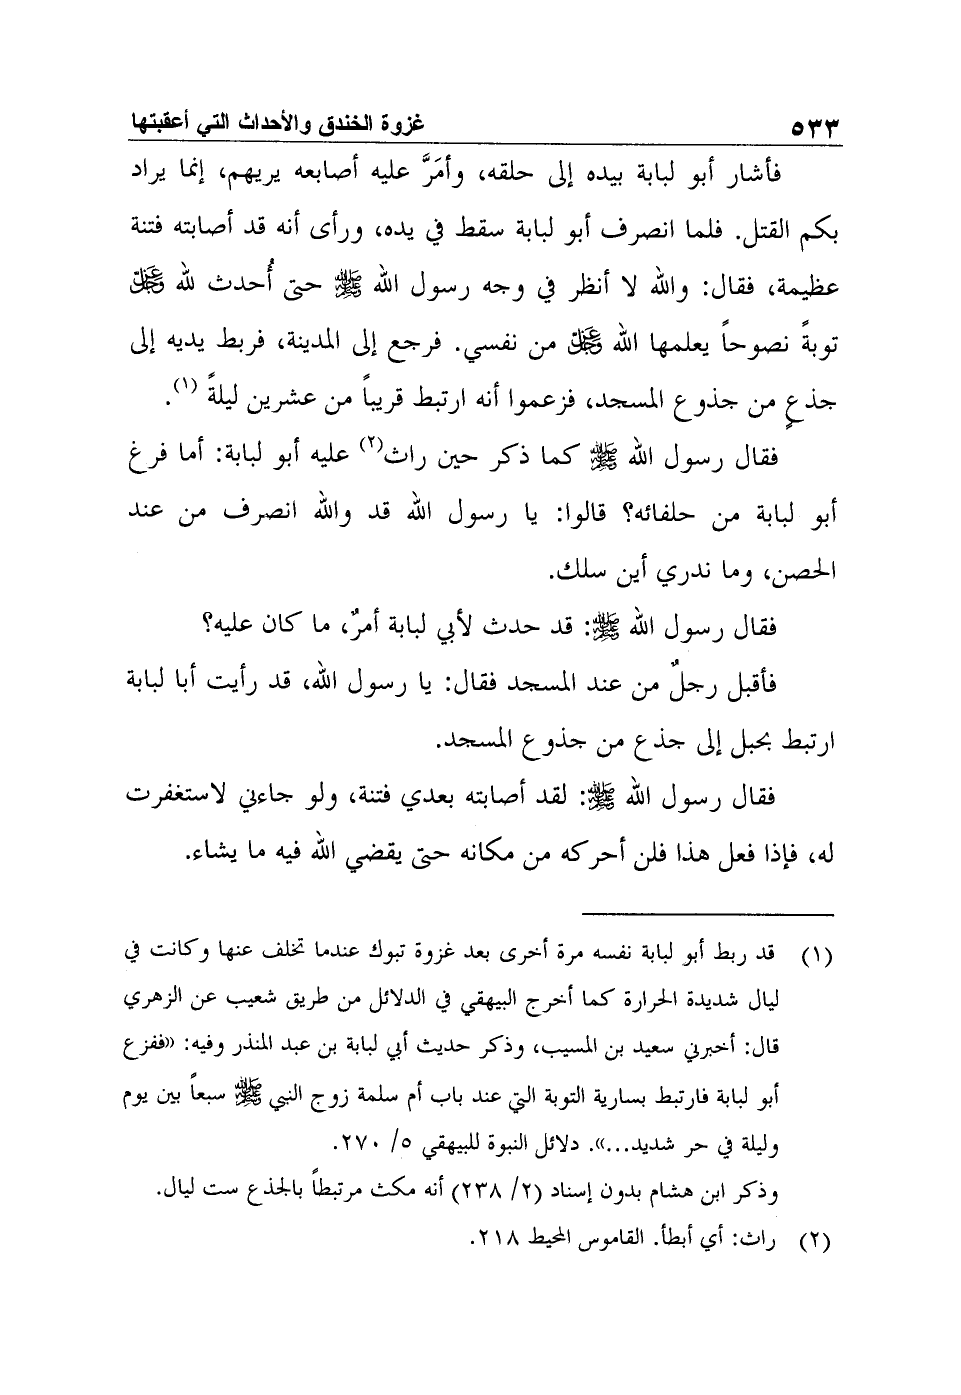 غزوة الخندق والأحداث التي أعقبتها ٥٣٣
فأشار أبو لبابة بيده إلى حلقه، وأمَرَّ عليه أصابعه يريهم، إنما يراد
بكم القتل. فلما انصرف أبو لبابة سقط في يده، ورأى أنه قد أصابته فتنة
عظيمة، فقال: والله لا أنظر في وجه رسول الله ﷺ حتى أُحدث لله عز وجل
توبةً نصوحاً يعلمها الله عز وجل من نفسي. فرجع إلى المدينة، فربط يديه إلى
جذعٍ من جذوع المسجد، فزعموا أنه ارتبط قريباً من عشرين ليلةً (١).
فقال رسول الله ﷺ كما ذكر حين راث(٢) عليه أبو لبابة: أما فرغ
أبو لبابة من حلفائه؟ قالوا: يا رسول الله قد والله انصرف من عند
الحصن، وما ندري أين سلك.
فقال رسول الله ﷺ: قد حدث لأبي لبابة أمرٌ، ما كان عليه؟
فأقبل رجلٌ من عند المسجد فقال: يا رسول الله، قد رأيت أبا لبابة
ارتبط بحبل إلى جذع من جذوع المسجد.
فقال رسول الله ﷺ: لقد أصابته بعدي فتنة، ولو جاءني لاستغفرت
له، فإذا فعل هذا فلن أحركه من مكانه حتى يقضي الله فيه ما يشاء.
(١) قد ربط أبو لبابة نفسه مرة أخرى بعد غزوة تبوك عندما تخلف عنها وكانت في
ليال شديدة الحرارة كما أخرج البيهقي في الدلائل من طريق شعيب عن الزهري
قال: أخبرني سعيد بن المسيب، وذكر حديث أبي لبابة بن عبد المنذر وفيه: «ففزع
أبو لبابة فارتبط بسارية التوبة التي عند باب أم سلمة زوج النبي ﷺ سبعاً بين يوم
وليلة في حر شديد...». دلائل النبوة للبيهقي ٥/ ٢٧٠.
وذكر ابن هشام بدون إسناد (٢/ ٢٣٨) أنه مكث مرتبطاً بالجذع ست ليال.
(٢) راث: أي أبطأ. القاموس المحيط ٢١٨.